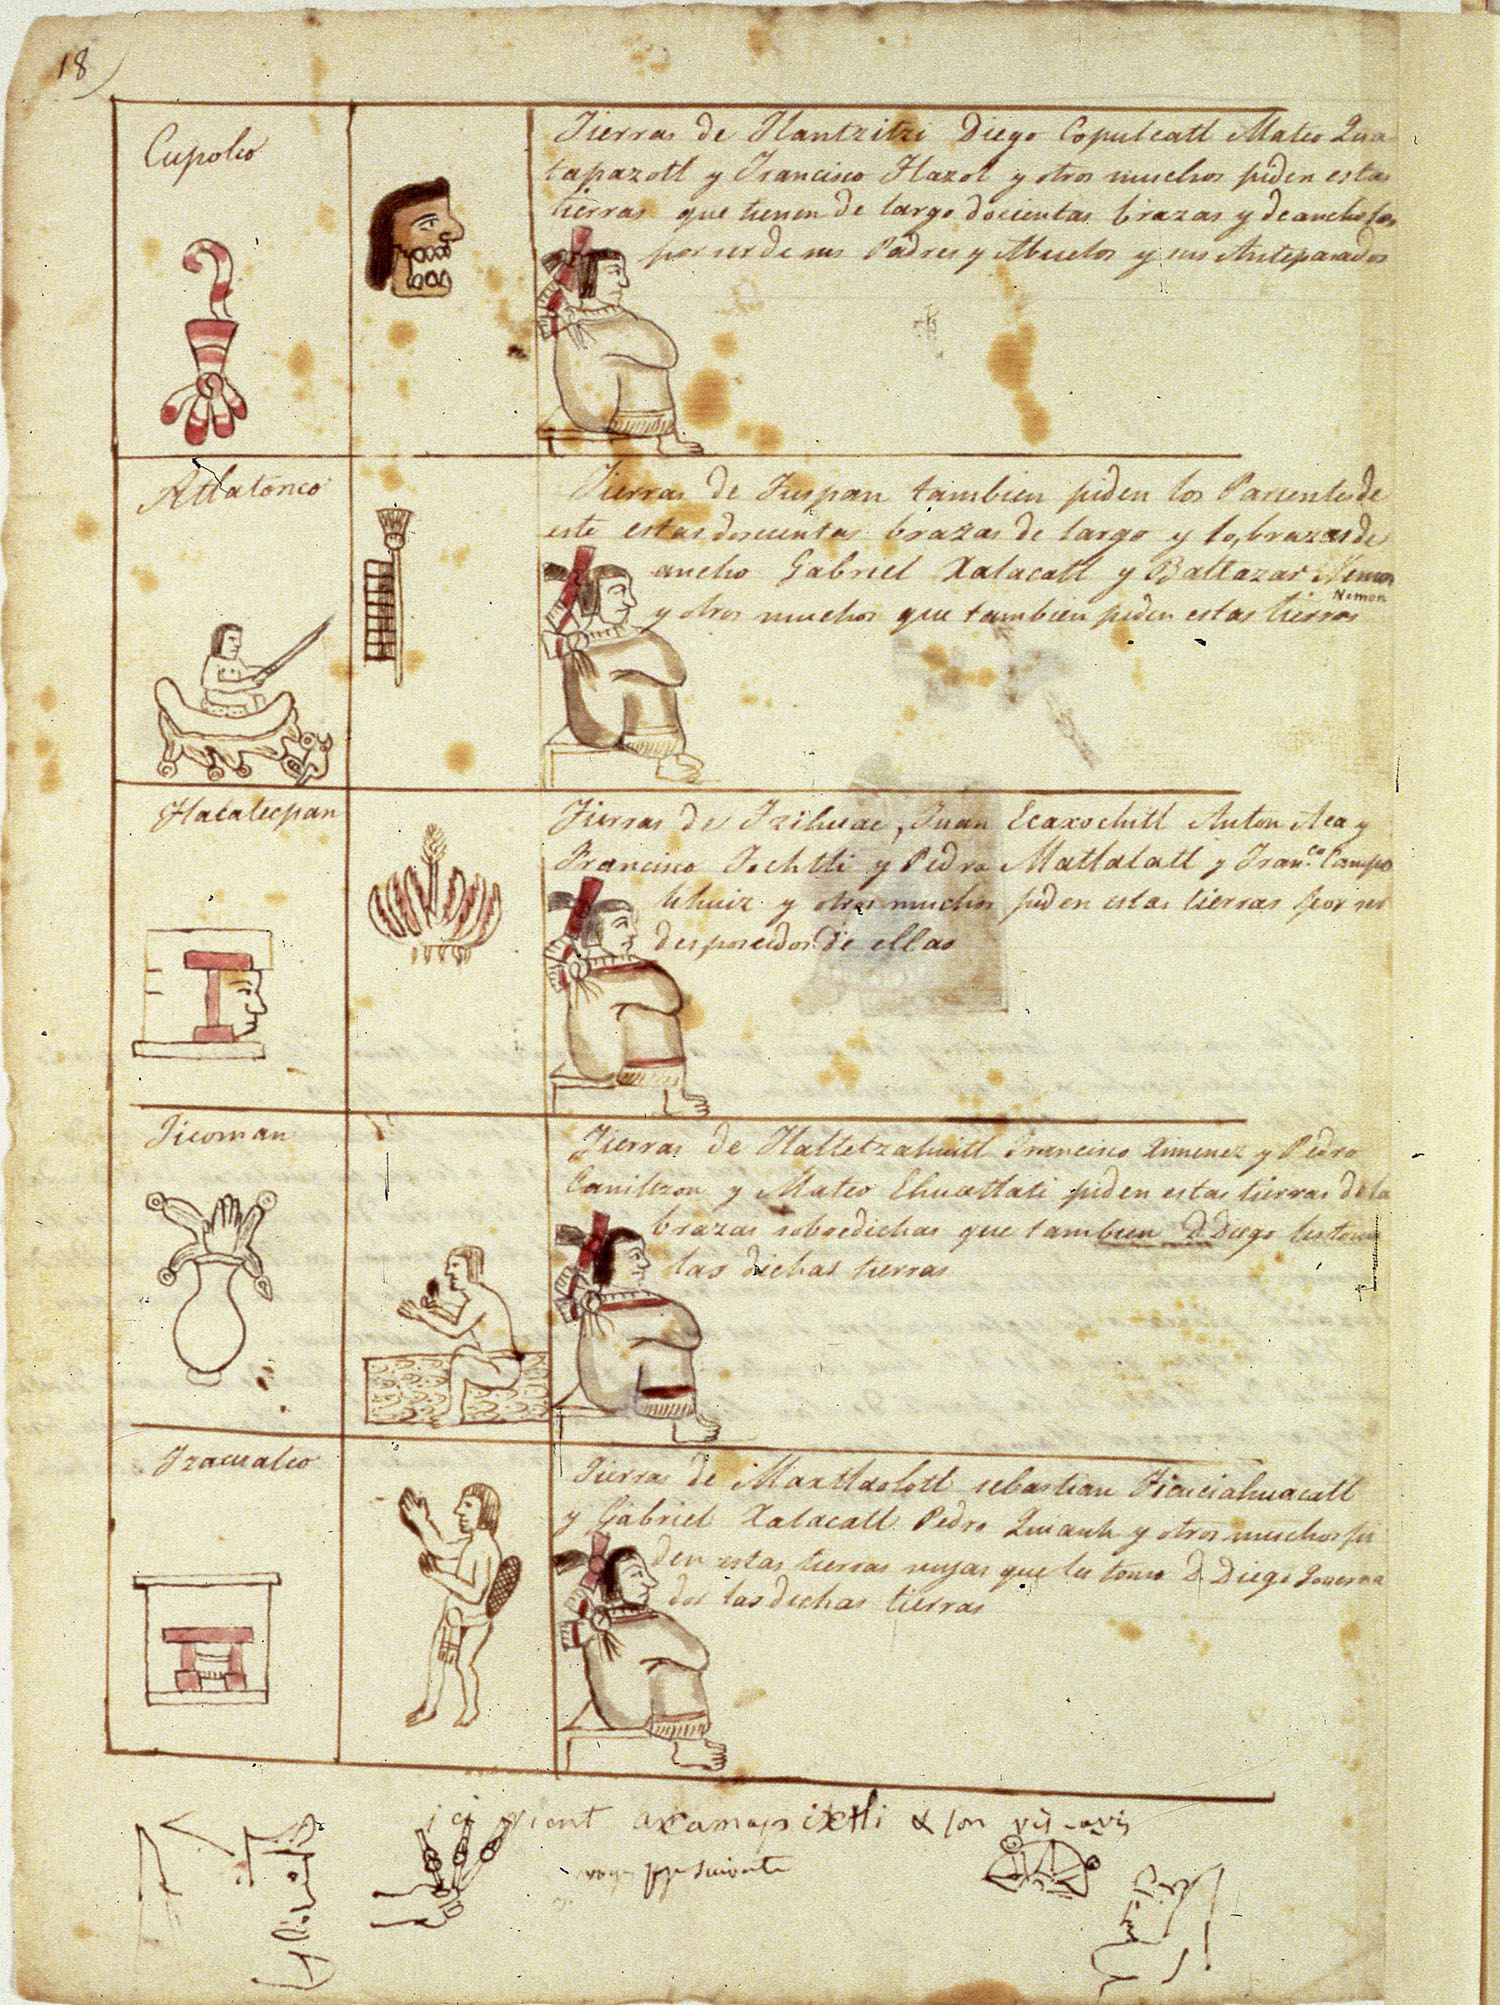 18
Cupolco
Tierras de Tlantzitzi Diego Copulcatl Mateo Qua
tapazotl y Francisco Tlazol y otros muchos piden estas
tierras que tienen de largo docientas brazas y de ancho
por ser de sus Padres y Abuelos y sus Antepasados
Atlatonco
Tierras de Tuspan tambien piden los Parientes de
este estas docientas brazas de largo y brazas de
ancho Gabriel Xalacatl y Baltazar Nemon
Nemon
y otros muchos que tambien piden estas tierras
Tlacatecpan
Tierras de Tzihuac, Juan Ecaxochitl Anton Aca y
Francisco Tochtli y Pedro Matlalatl y Franco. Campo
y otros muchos piden estas tierras por ser
desposeidos de ellas
Ticoman
Tierras de Francisco Ximenez y Pedro
y Mateo Ehuatlati piden estas tierras de la
brazas sobredichas que tambien D Diego les tomo
las dichas tierras
Tzacualco
Tierras de Maxtlaolotl sebastian
y Gabriel Xalacatl Pedro Quiauh y otros muchos pi
den estas tierras suyas que les tomo D Diego Governa
dor las dichas tierras
ici vient acamapixtli & son vis-a-vis
voyez page suivante